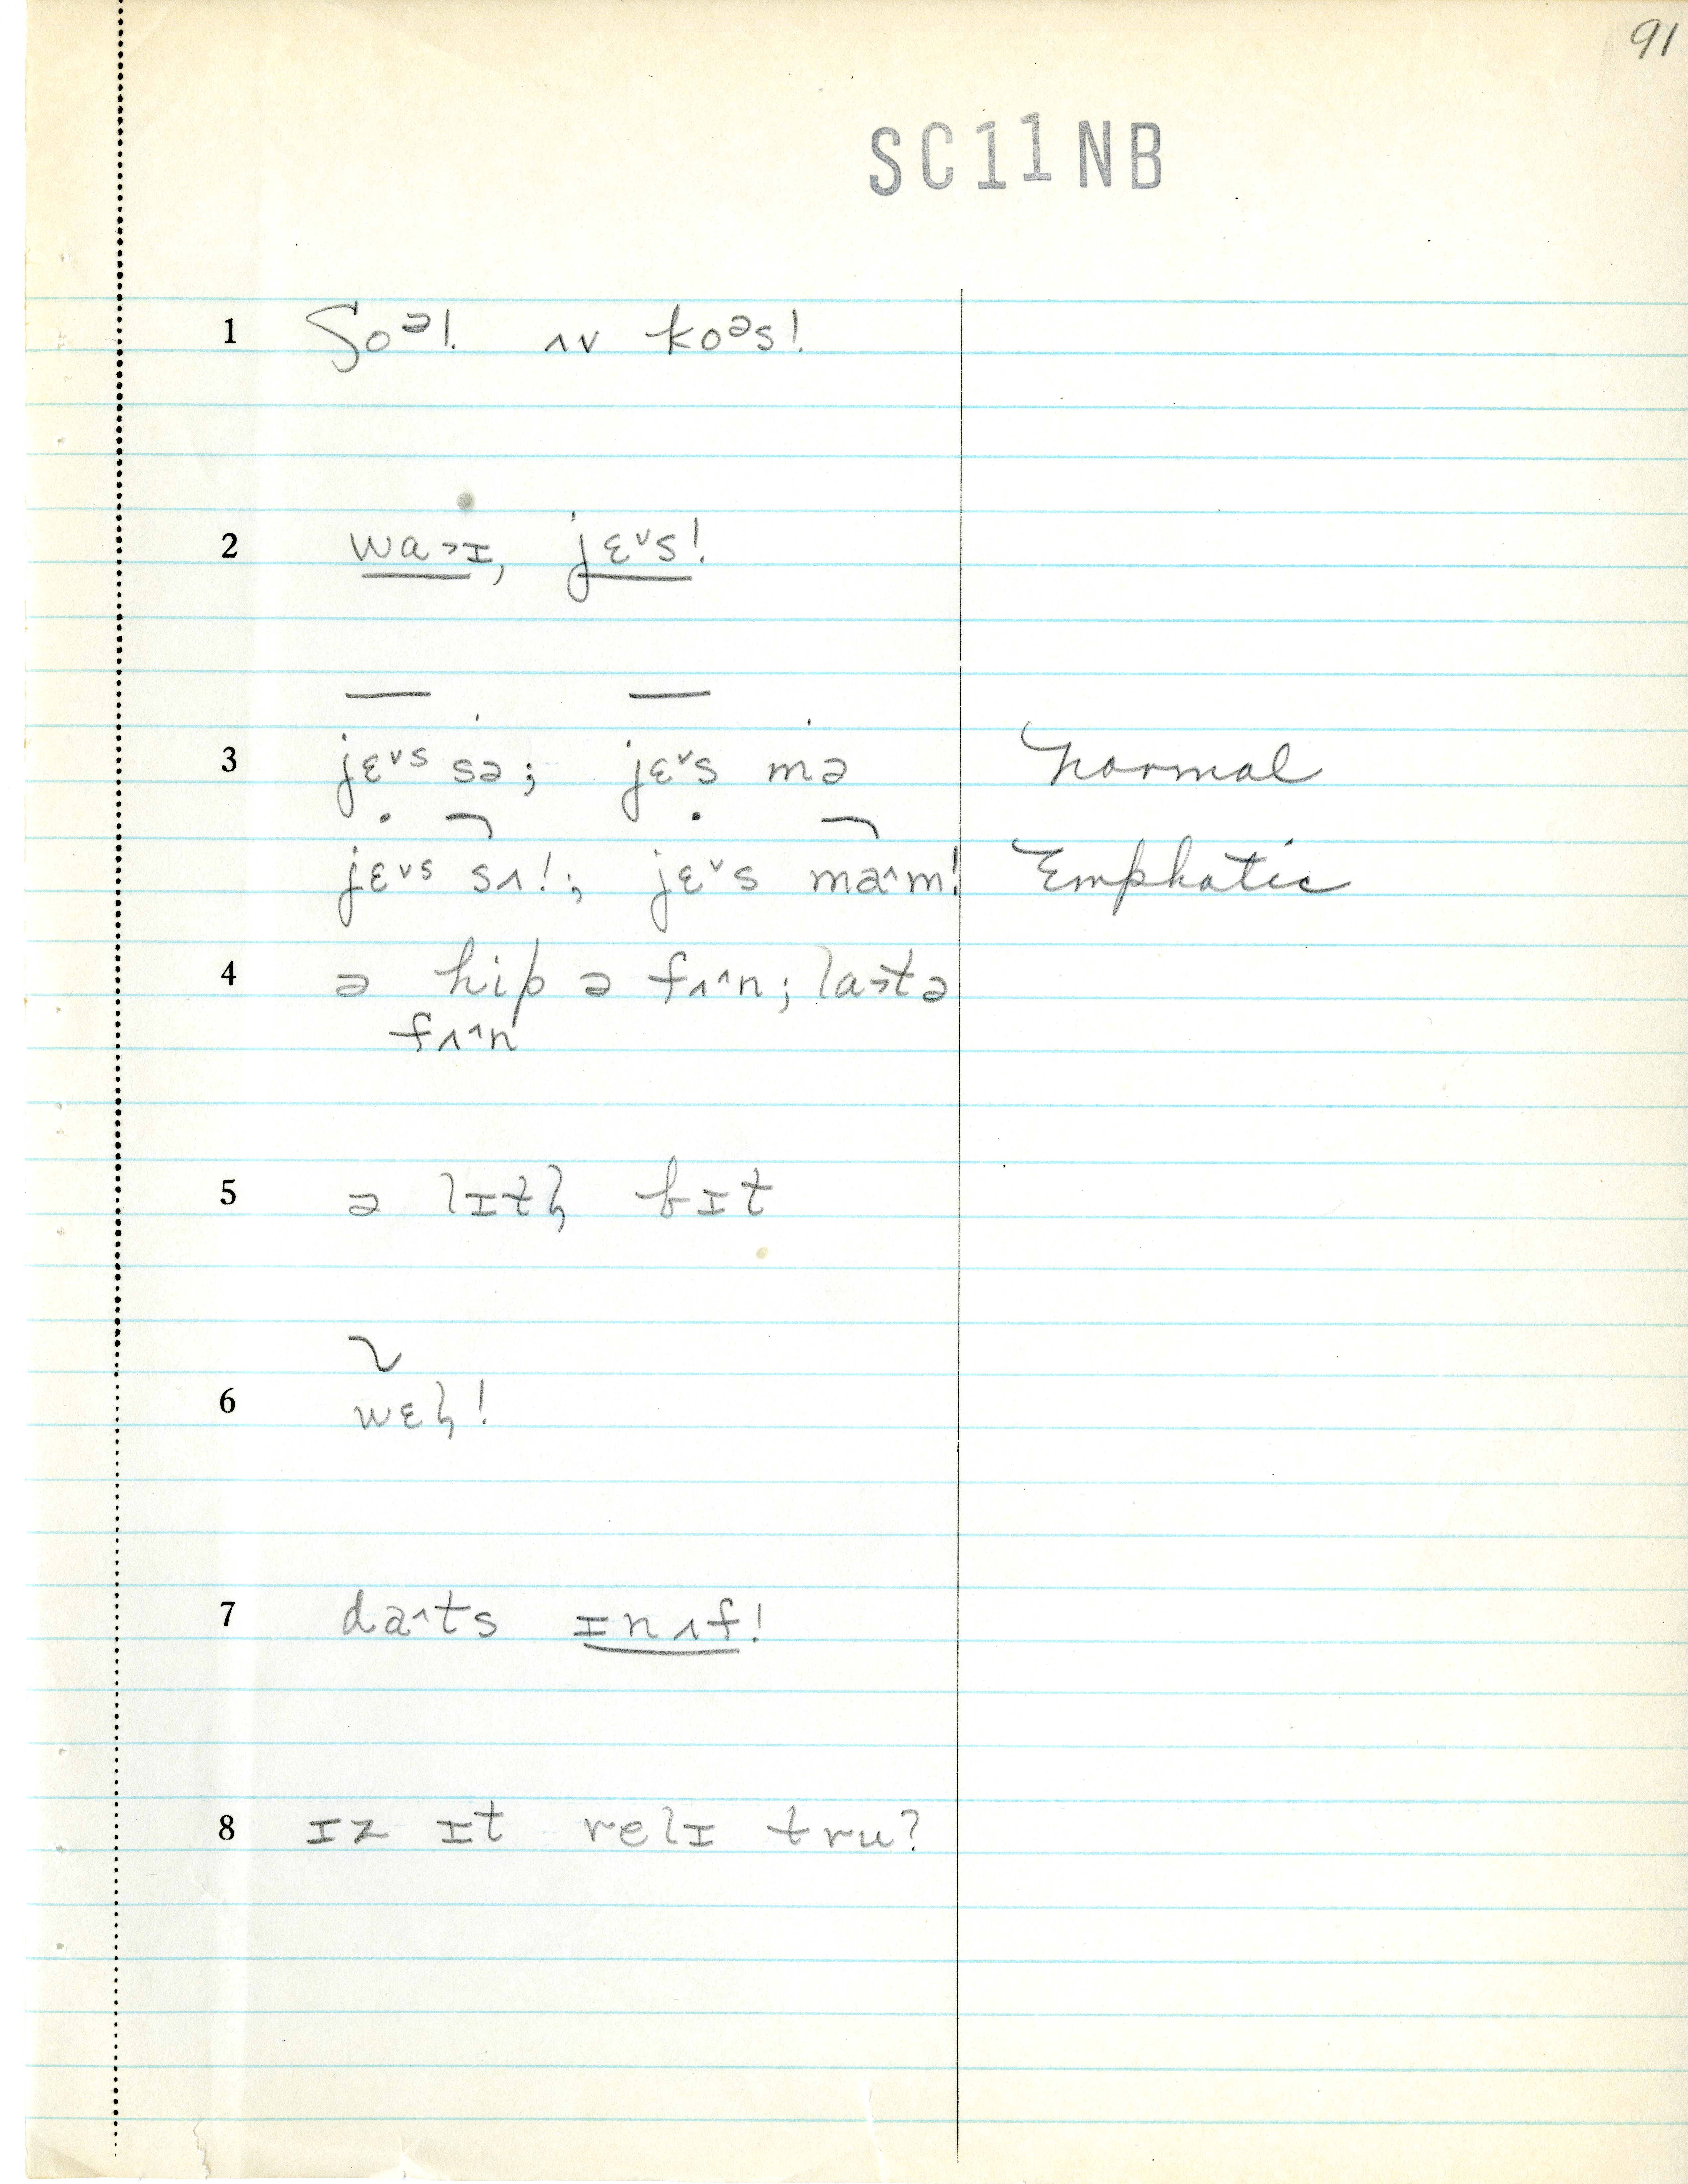 91
SC11NB
1 ʃoᵊ! ʌv koᵊs!
2 wa˃ɪ, jɛ˅s!
3 jɛ˅s sə; jɛ˅s mə Normal
jɛ˅s sʌ!; jɛ˅s ma˄m! Emphatic
4 ə hip ə fʌ˄n; la˃tə
fʌ˄n
5 ə lɪtl̩ bɪt
6 wɛl̩!
7 da˄ts ɪnʌf!
8 ɪz ɪt relɪ tru?